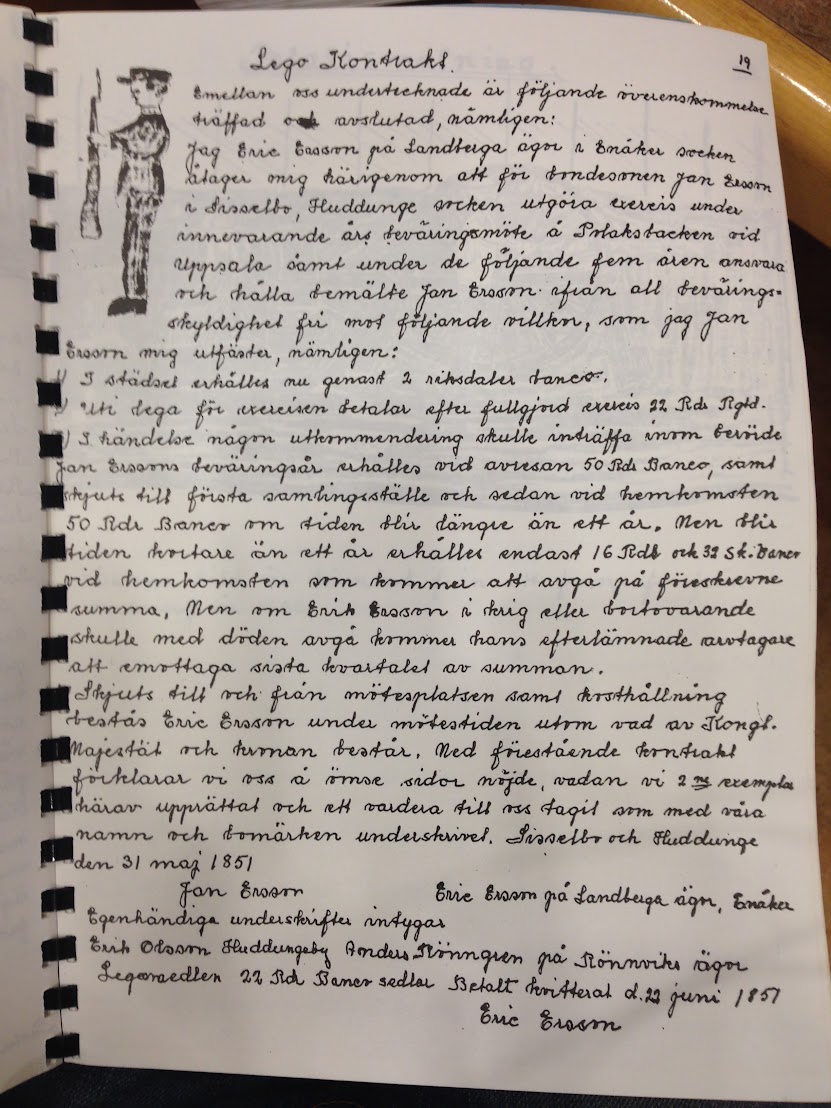 19
Lego Kontrakt.
Emellan oss undertecknade är följande överenskommelse
träffad och avslutad, nämligen:
Jag Eric Ersson på Landberga ägor i Enåker socken
åtager mig härigenom att för bondesonen Jan Ersson
i Sisselbo, Huddunge socken utgöra exercis under
innevarande års beväringsmöte å Polaksbacken vid
Uppsala samt under de följande fem åren ansvara
och hålla bemälte Jan Ersson ifrån all bevärings-
skyldighet fri mot följande villkor, som jag Jan
Ersson mig utfäster, nämligen:
1) I städsel erhålles nu genast 2 riksdaler banco.
) Uti lega för exercisen betalar efter fullgjord exercis 22 Rdr Rgld.
) I händelse någon utkommendering skulle inträffa inom berörde
Jan Erssons beväringsår erhålles vid avresan 50 Rdr Banco, samt
skjuts till första samlingsställe och sedan vid hemkomsten
50 Rdr Banco om tiden blir längre än ett år. Men blir
tiden kortare än ett år erhålles endast 16 Rdb och 32 Sk. Banco
vid hemkomsten som kommer att avgå på föreskrevne
summa, Men om Erik Ersson i krig eller bortovarande
skulle med döden avgå kommer hans efterlämnade arvtagare
att emottaga sista kvartalet av summan.
Skjuts till och från mötesplatsen samt kosthållning
bestås Eric Ersson under mötestiden utom vad av Kongl.
Majestät och kronan består. Med förestående kontrakt
förklarar vi oss å ömse sidor nöjde, vadan vi 2 ne exemplar
härav upprättat och ett vardera till oss tagit som med våra
namn och bomärken underskrivet. Sisselbo och Huddunge
den 31 maj 1851
Jan Ersson Eric Ersson på Landberga ägor, Enåker
Egenhändiga underskrifter intygar
Erik Olsson Huddungeby Anders Rönngren på Rönnviks ägor
22 Rdr Banco sedlar Betalt kvitterat d. 22 juni 1851
Eric Ersson